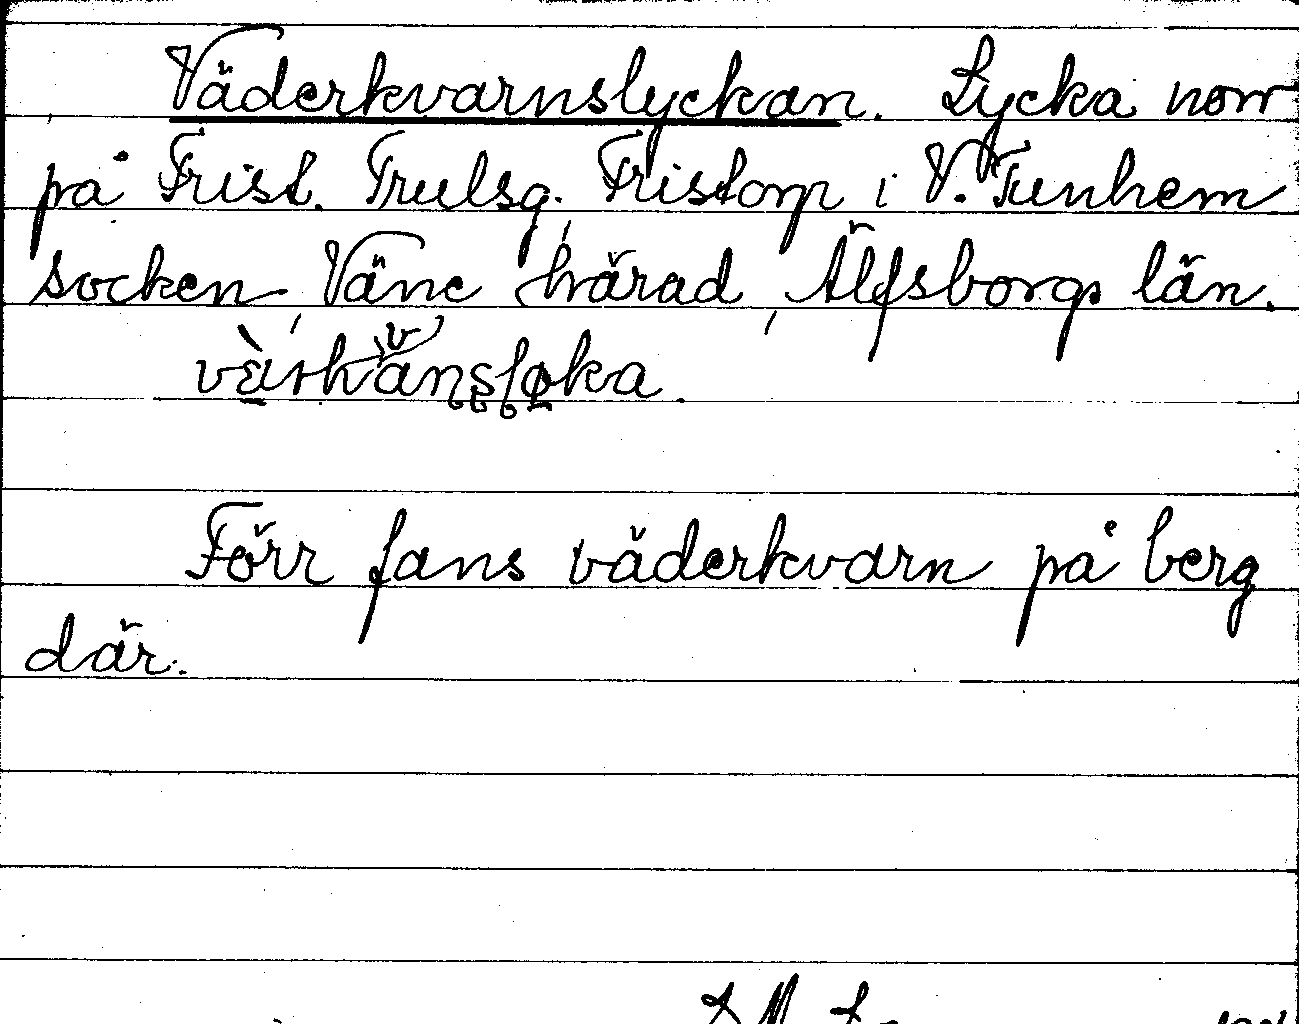 Väderkvarnslyckan. Lycka norr
på Frist. Trulsg. Fristorp i V. Tunhem
socken, Väne härad, Älfsborgs län.
Förr fans väderkvarn på berg
där.